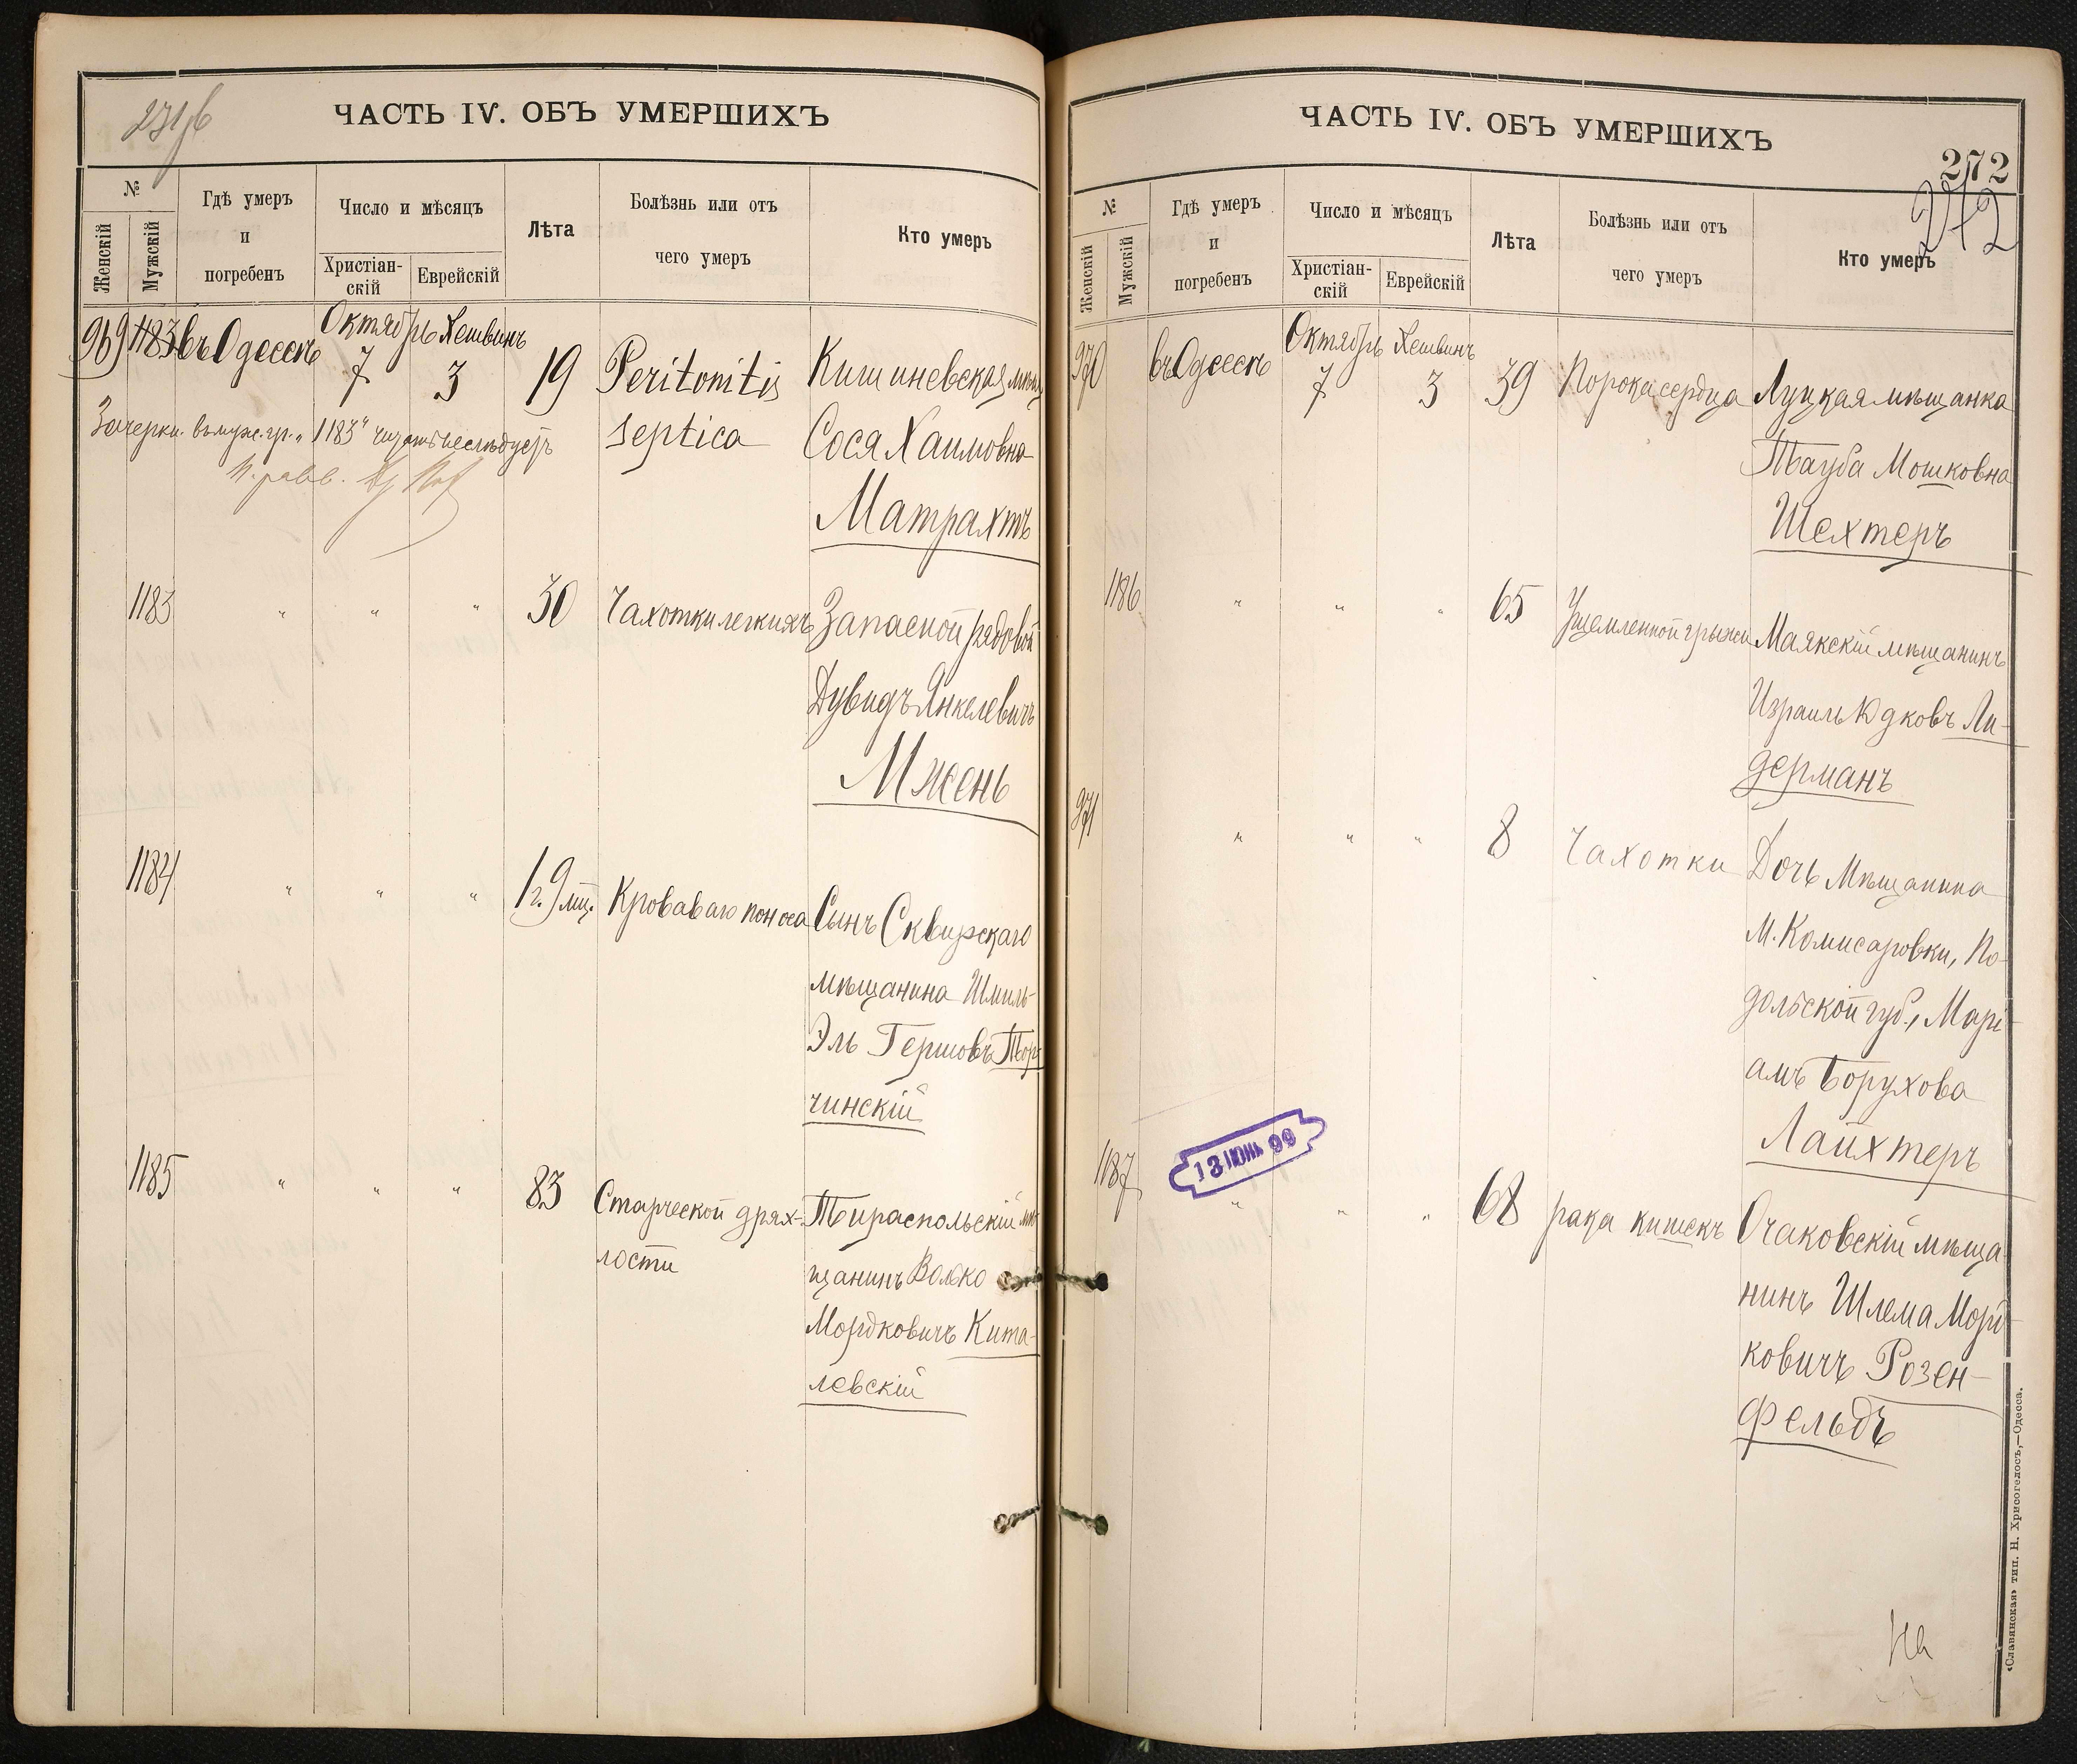 271 об
ЧАСТЬ IV. ОБЪ УМЕРШИХЪ
№
Женскій
Мужскій
Гдѣ умеръ
и
погребенъ
Число и мѣсяцъ
Христіан-
скій
Еврейскій
Лѣта
Болѣзнь или отъ
чего умеръ
Кто умеръ
969 1183 въ Одессѣ Октябрь 7 Хешвинъ 3 19 Peritonitis Кишиневская мѣщ
septica Сося Хаимовна
Матрахтъ
Зачеркн. въ муж. гр. „1183" читать не слѣдуетъ
И. равв.
1183 " " " 30 Чахотки легкихъ Запасной рядовой
Дувидъ Янкелевичъ
Мжень
1184 " " " 1 г. 9 мц. Кроваваго поноса Сынъ Сквирскаго
мѣщанина Шмиль-
Эль Гершовъ Тор-
чинскій
1185 " " " 83 Старческой дрях- Тираспольскій мѣ-
лости щанинъ Волько
Мордковичъ Кита-
левскій
ЧАСТЬ IV. ОБЪ УМЕРШИХЪ
272
272
№
Женскій
Мужскій
Гдѣ умеръ
и
погребенъ
Число и мѣсяцъ
Христіан-
скій
Еврейскій
Лѣта
Болѣзнь или отъ
чего умеръ
Кто умеръ
970 въ Одессѣ Октябрь 7 Хешвинъ 3 39 Порока сердца Луцкая мѣщанка
Тауба Мошковна
Шехтеръ
1186 " " " 65 Ущемленной грыжи Маякскій мѣщанинъ
Израиль Юдковъ Ли-
дерманъ
971 " " " 8 Чахотки Дочь Мѣщанина
М. Комисаровки, По-
дольской губ., Марі-
амъ Борухова
Лайхтеръ
13 ІЮНЬ 99
1187 " " " 68 рака кишекъ Очаковскій мѣща-
нинъ Шлема Морд-
ковичъ Розен-
фельдъ
На
«Славянская» тип. Н. Хрисогелосъ,—Одесса.